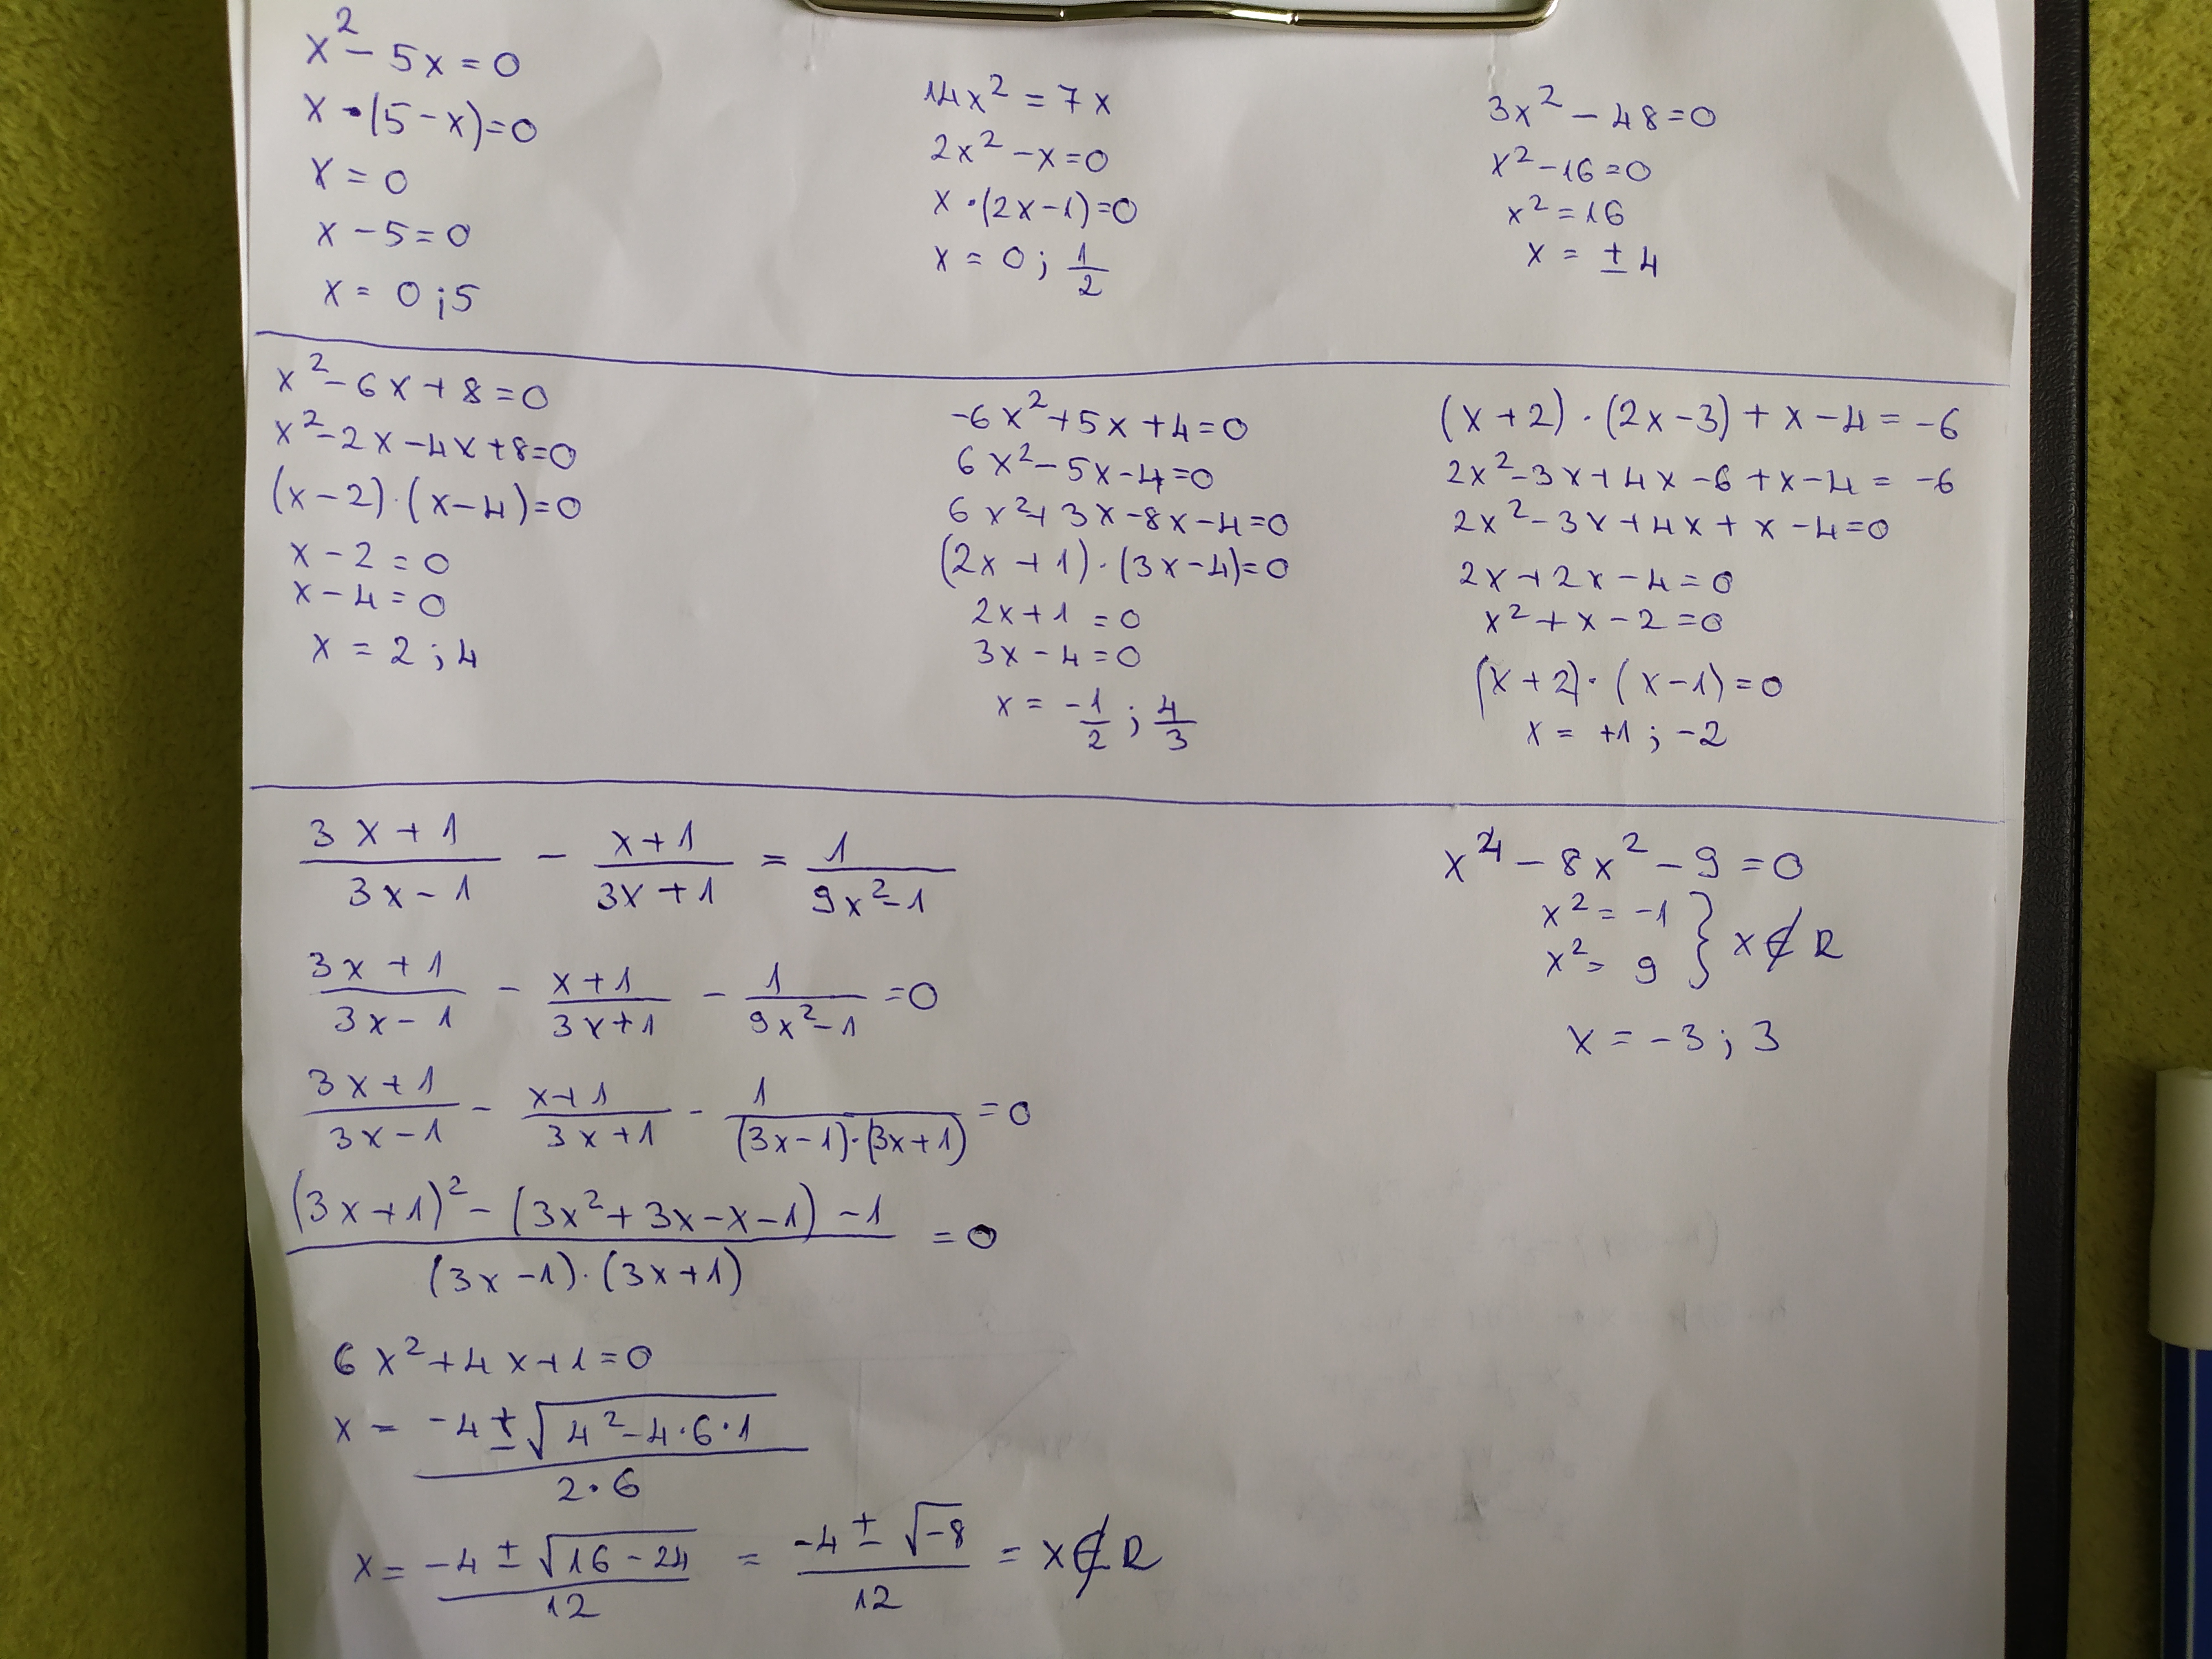 x² - 5x = 0
x · (5 - x) = 0
x = 0
x - 5 = 0
x = 0 ; 5
14x² = 7x
2x² - x = 0
x · (2x - 1) = 0
x = 0 ; 1/2
3x² - 48 = 0
x² - 16 = 0
x² = 16
x = ± 4
x² - 6x + 8 = 0
x² - 2x - 4x + 8 = 0
(x - 2) · (x - 4) = 0
x - 2 = 0
x - 4 = 0
x = 2 ; 4
-6x² + 5x + 4 = 0
6x² - 5x - 4 = 0
6x² + 3x - 8x - 4 = 0
(2x + 1) · (3x - 4) = 0
2x + 1 = 0
3x - 4 = 0
x = -1/2 ; 4/3
(x + 2) · (2x - 3) + x - 4 = -6
2x² - 3x + 4x - 6 + x - 4 = -6
2x² - 3x + 4x + x - 4 = 0
2x + 2x - 4 = 0
x² + x - 2 = 0
(x + 2) · (x - 1) = 0
x = +1 ; -2
(3x + 1)/(3x - 1) - (x + 1)/(3x + 1) = 1/(9x² - 1)
(3x + 1)/(3x - 1) - (x + 1)/(3x + 1) - 1/(9x² - 1) = 0
(3x + 1)/(3x - 1) - (x + 1)/(3x + 1) - 1/((3x - 1) · (3x + 1)) = 0
((3x + 1)² - (3x² + 3x - x - 1) - 1)/((3x - 1) · (3x + 1)) = 0
6x² + 4x + 1 = 0
x = (-4 ± √(4² - 4 · 6 · 1))/(2 · 6)
x = (-4 ± √(16 - 24))/12 = (-4 ± √-8)/12 = x ∉ R
x⁴ - 8x² - 9 = 0
x² = -1 } x ∉ R
x² = 9
x = -3 ; 3